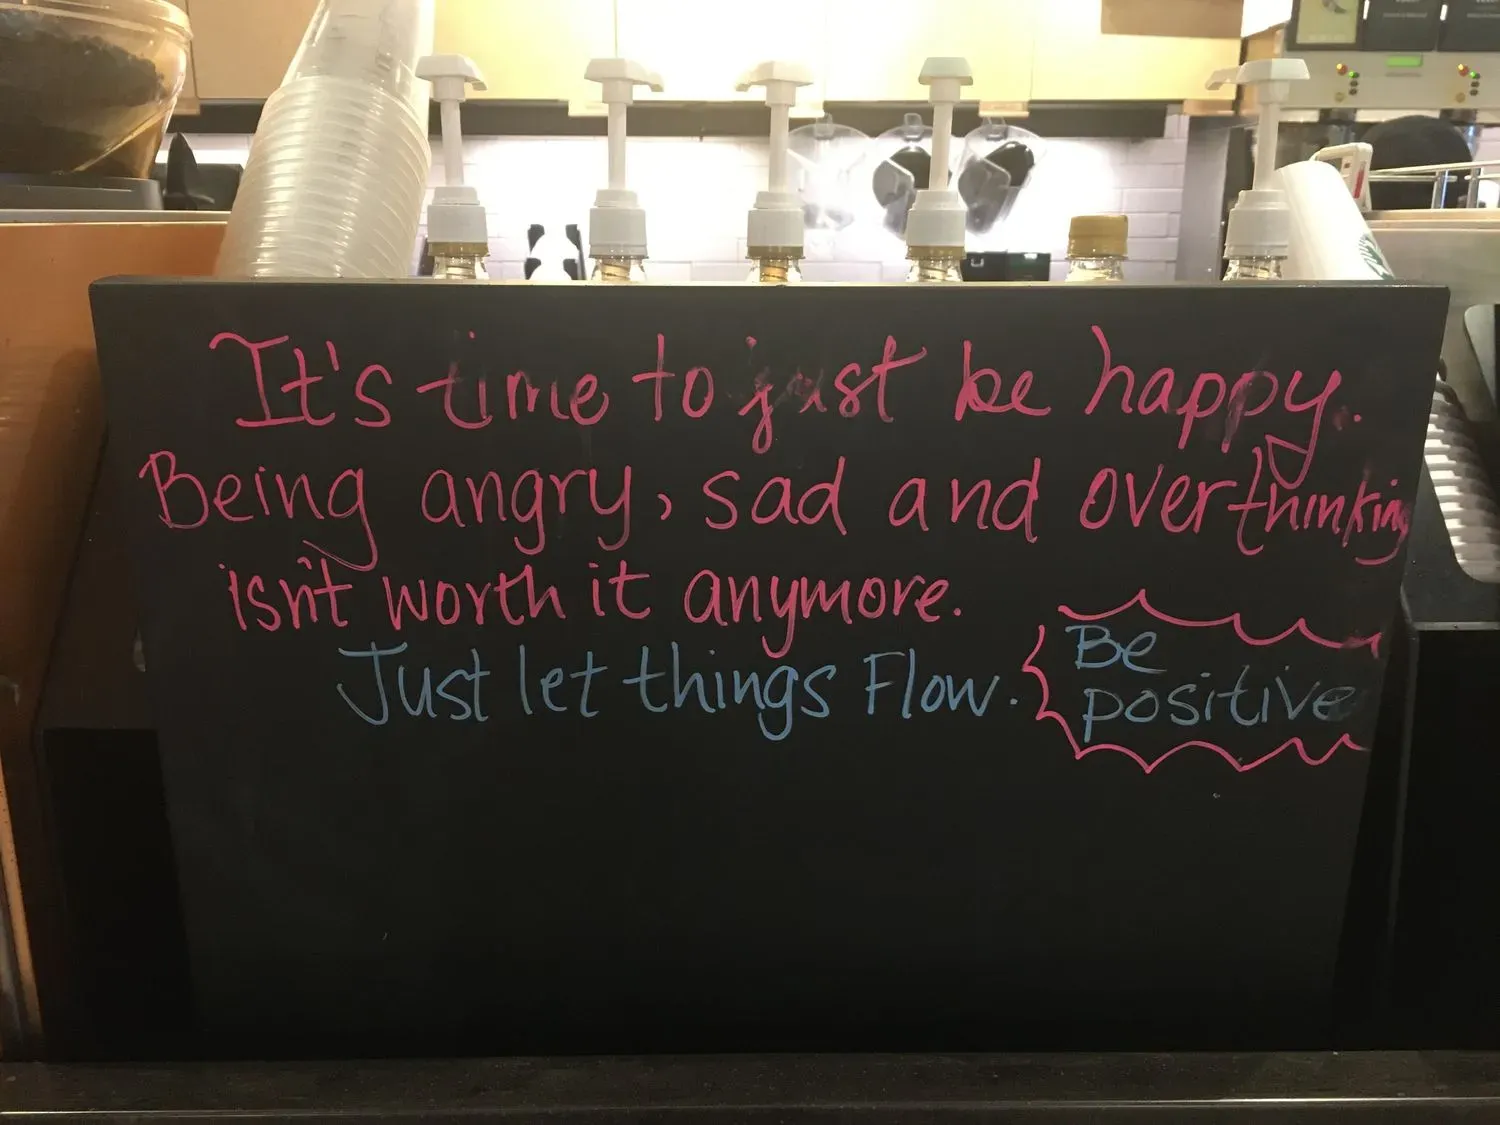 It's time to just be happy.
Being angry, sad and overthinking
isn't worth it anymore.
Just let things Flow.
Be
positive